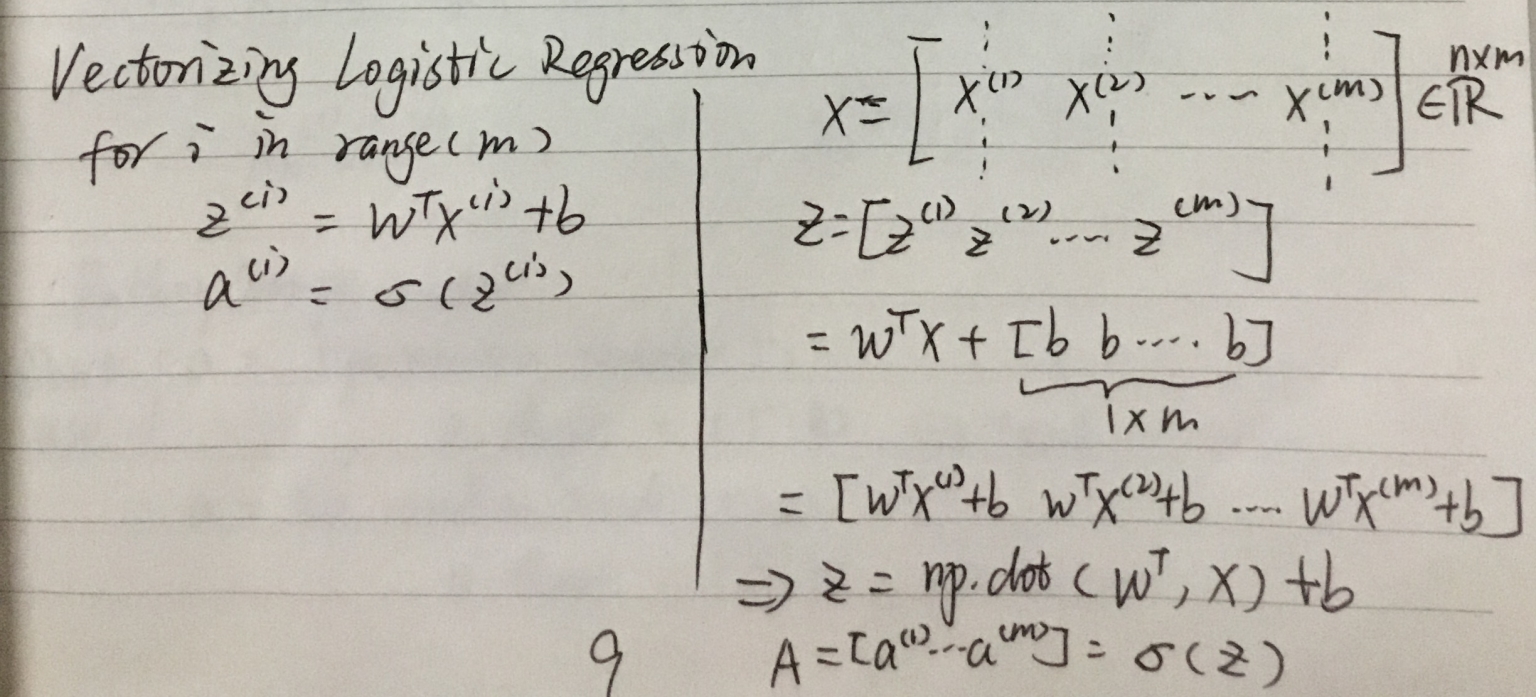 Vectorizing Logistic Regression
for i in range(m)
z⁽ⁱ⁾ = wᵀx⁽ⁱ⁾ + b
a⁽ⁱ⁾ = σ(z⁽ⁱ⁾)
X = [x⁽¹⁾ x⁽²⁾ ---- x⁽ᵐ⁾] ∈ ℝⁿˣᵐ
Z = [z⁽¹⁾ z⁽²⁾ .... z⁽ᵐ⁾]
= wᵀX + [b b .... b]
1×m
= [wᵀx⁽¹⁾+b wᵀx⁽²⁾+b .... wᵀx⁽ᵐ⁾+b]
⇒ Z = np.dot(wᵀ, X) + b
A = [a⁽¹⁾...a⁽ᵐ⁾] = σ(z)
9